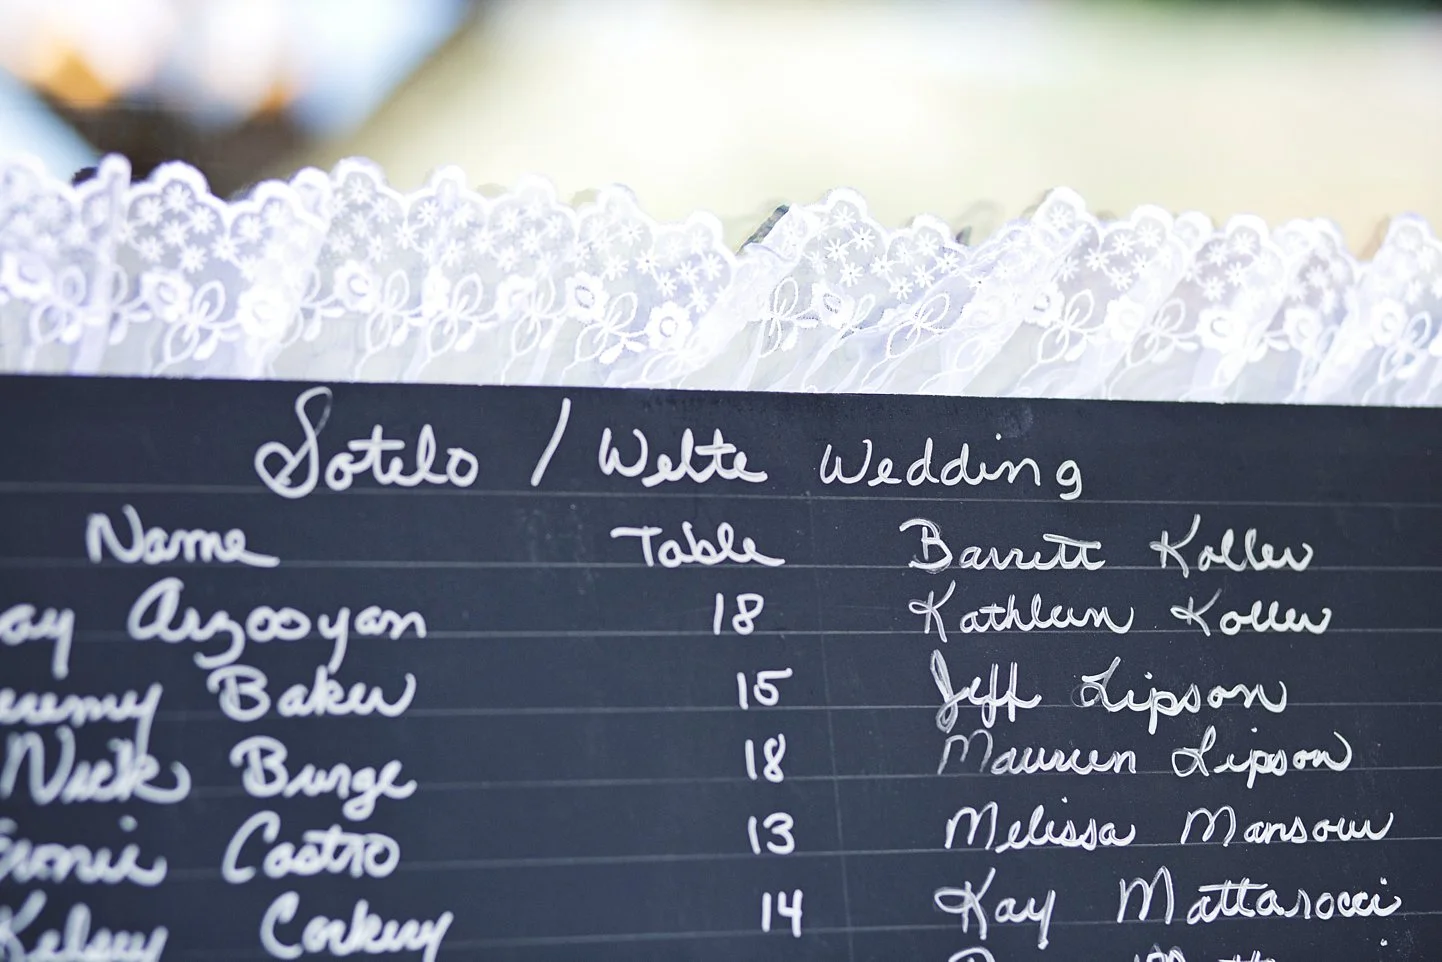 Sotelo / Welte Wedding
Name Table Barrett Koller
Arzooyan 18 Kathleen Koller
Baker 15 Jeff Lipson
Nick Burge 18 Maureen Lipson
Castro 13 Melissa Mansour
Kelsey Corkery 14 Kay Mattarocci